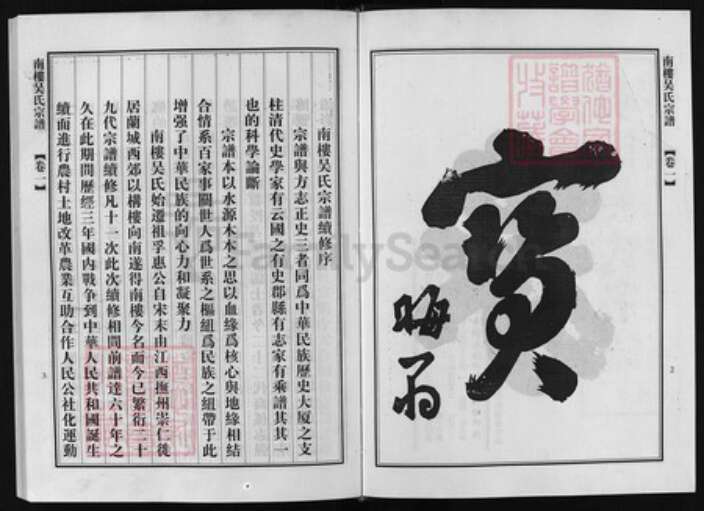 南樓吴氏宗譜
【卷一】
寶
晦翁
2
南樓吴氏宗譜續修序
宗譜與方志正史三者同爲中華民族歷史大厦之支
柱清代史學家有云國之有史郡縣有志家有乘譜其其一
也的科學論斷
宗譜本以水源木本之思以血緣爲核心與地緣相結
合情系百家事關世人爲世系之樞組爲民族之紐帶于此
增强了中華民族的向心力和凝聚力
南樓吴氏始遷祖孚惠公自宋末由江西撫州崇仁徙
居蘭城西郊以構樓向南遂得南樓今名而今已繁衍二十
九代宗譜續修凡十一次此次續修相間前譜達六十年之
久在此期間歷經三年國内戰争到中華人民共和國誕生
續而進行農村土地改革農業互助合作人民公社化運動
南樓吴氏宗譜
【卷一】
3
FamilySearch